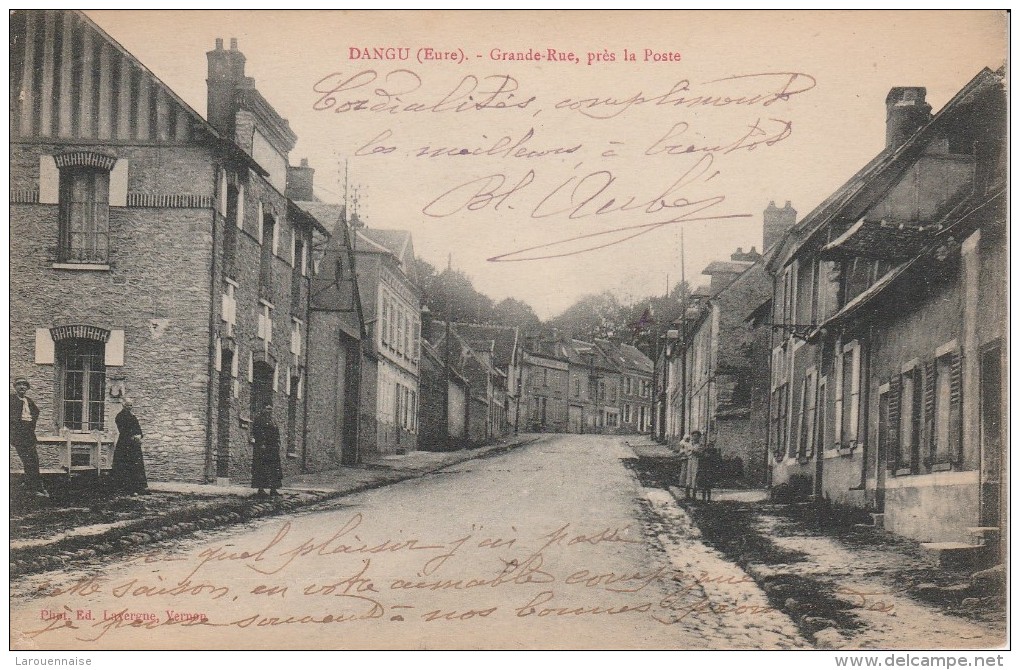 DANGU (Eure). - Grande-Rue, près la Poste
Cordialités, compliments
les meilleurs, à bientôt
Bl. Aubé
quel plaisir j'ai passé
cette saison, en votre aimable
Phot. Ed. Lavergne, Vernon
je pense souvent à nos bonnes
Larouennaise
www.delcampe.net